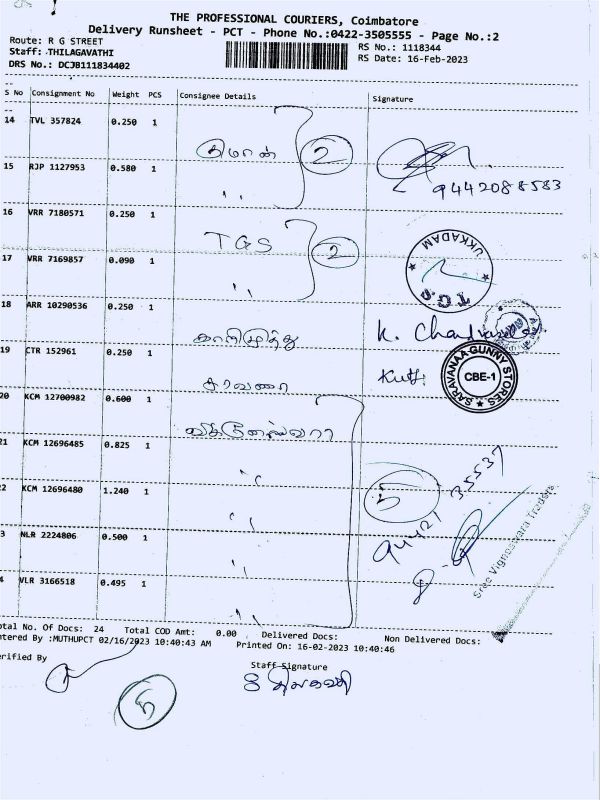 THE PROFESSIONAL COURIERS, Coimbatore
Delivery Runsheet - PCT - Phone No.:0422-3505555 - Page No.:2
Route: R G STREET
Staff: THILAGAVATHI
DRS No.: DCJB111834402
RS No.: 1118344
RS Date: 16-Feb-2023
S No Consignment No Weight PCS Consignee Details Signature
14 TVL 357824 0.250 1
2
15 RJP 1127953 0.580 1 ,,
9442088583
16 VRR 7180571 0.250 1 TGS
2
UKKADAM
T.G.S
17 VRR 7169857 0.090 1 ,,
18 ARR 10290536 0.250 1 காளிமுத்து
K.
19 CTR 152961 0.250 1 சரவணா
SARAVANAA GUNNY STORES
CBE-1
20 KCM 12700982 0.600 1
21 KCM 12696485 0.825 1 ,,
5
94421 35537
22 KCM 12696480 1.240 1 ,,
Sree Vigneswara Traders
3 NLR 2224806 0.500 1 ,,
4 VLR 3166518 0.495 1 ,,
otal No. Of Docs: 24 Total COD Amt: 0.00 Delivered Docs: Non Delivered Docs:
ntered By :MUTHUPCT 02/16/2023 10:40:43 AM Printed On: 16-02-2023 10:40:46
erified By
Staff Signature